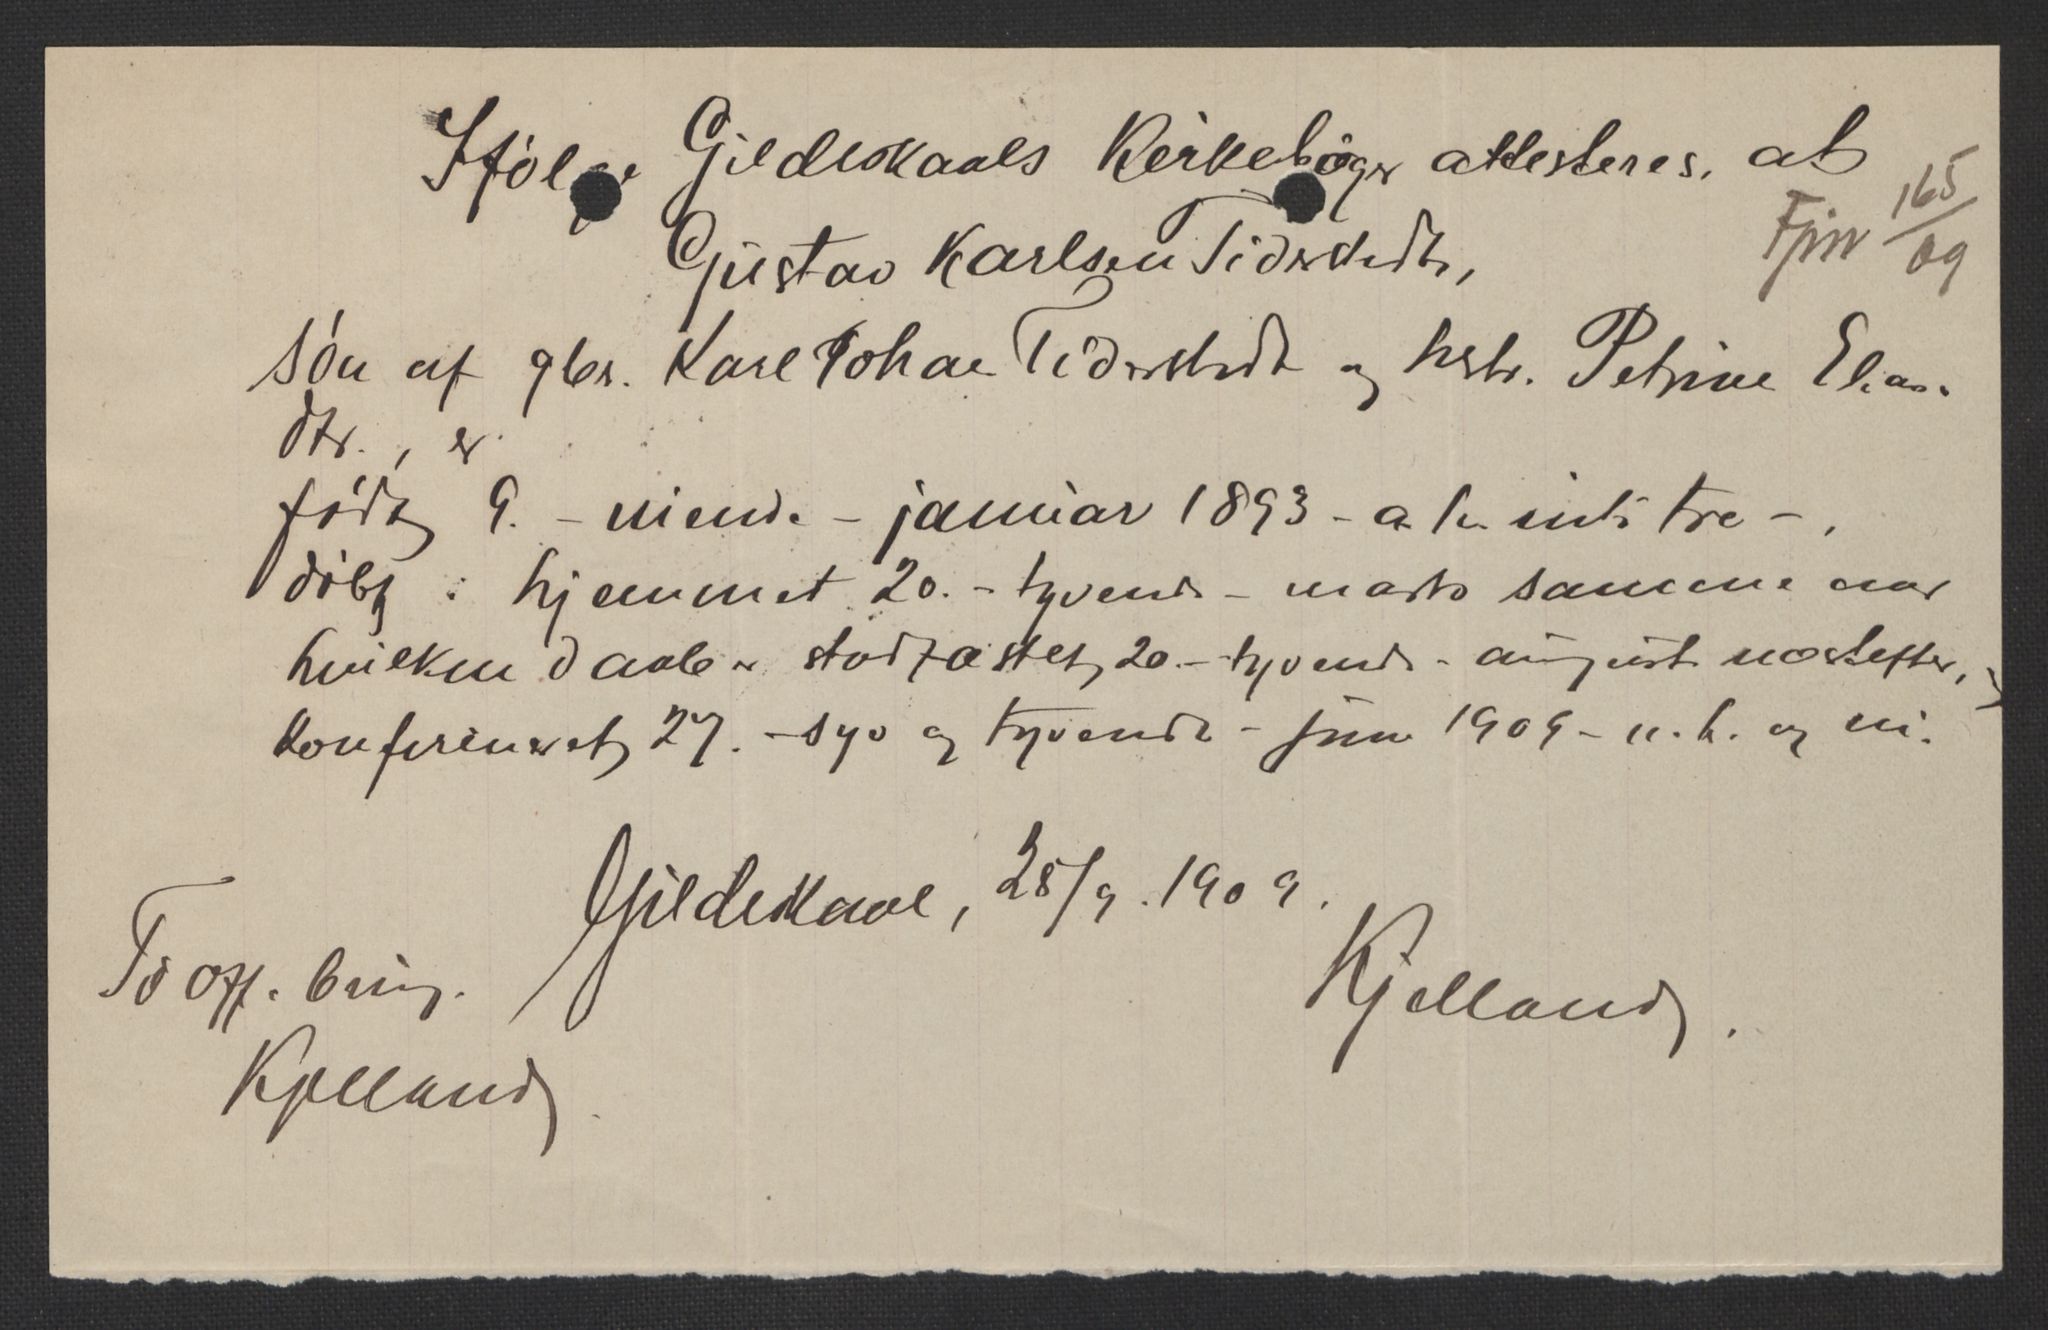 Ifølge Gildeskaals Kirkebøger attesteres, at
Gustav Karlsen Tiderstedt,
søn af gbr. Karl Johan Tiderstedt og hstr. Petrine Elias-
dtr., er
født 9. - niende - januar 1893 - a. h. niti tre -,
døbt i hjemmet 20. - tyvende - marts samme aar
hvilken daab er stadfæstet 20. - tyvende - august næstefter,
konfirmeret 27. - syv og tyvende - juni 1909 - n. h. og ni.
Gildeskaal, 28/9. 1909.
Kjelland.
To off. brug.
Kjelland.
Fjnr 165/09